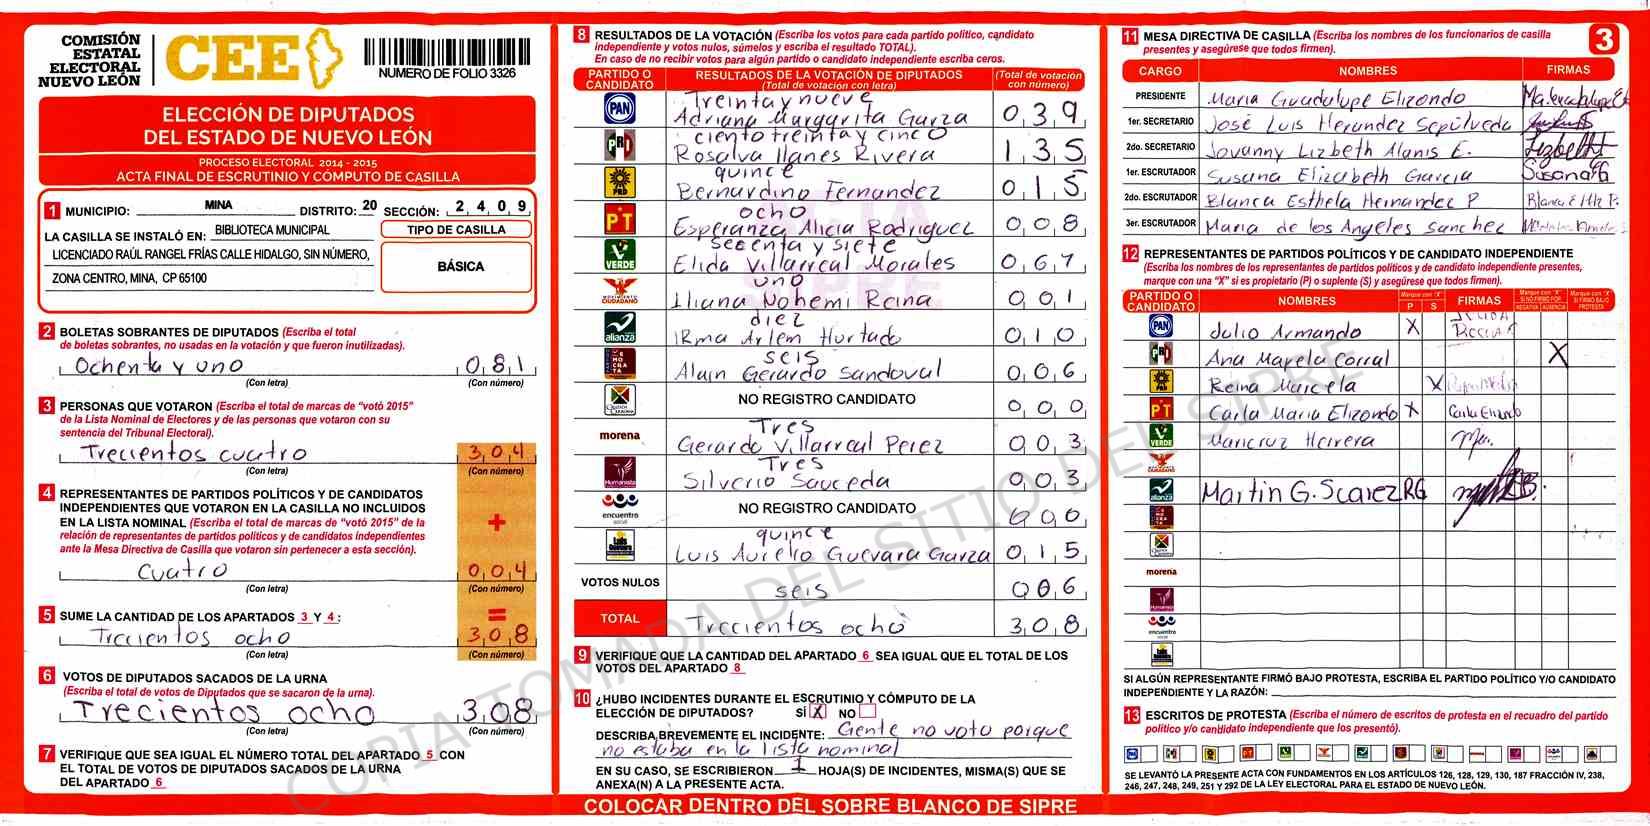 COMISIÓN
ESTATAL
ELECTORAL
NUEVO LEÓN
CEE
NUMERO DE FOLIO 3326
ELECCIÓN DE DIPUTADOS
DEL ESTADO DE NUEVO LEÓN
PROCESO ELECTORAL 2014 - 2015
ACTA FINAL DE ESCRUTINIO Y CÓMPUTO DE CASILLA
1 MUNICIPIO: MINA DISTRITO: 20 SECCIÓN: 2 4 0 9
LA CASILLA SE INSTALÓ EN: BIBLIOTECA MUNICIPAL
LICENCIADO RAÚL RANGEL FRÍAS CALLE HIDALGO, SIN NÚMERO,
ZONA CENTRO, MINA, CP 65100
TIPO DE CASILLA
BÁSICA
2 BOLETAS SOBRANTES DE DIPUTADOS (Escriba el total
de boletas sobrantes, no usadas en la votación y que fueron inutilizadas).
Ochenta y uno 0 8 1
(Con letra) (Con número)
3 PERSONAS QUE VOTARON (Escriba el total de marcas de "votó 2015"
de la Lista Nominal de Electores y de las personas que votaron con su
sentencia del Tribunal Electoral).
Trecientos cuatro 3 0 4
(Con letra) (Con número)
4 REPRESENTANTES DE PARTIDOS POLÍTICOS Y DE CANDIDATOS
INDEPENDIENTES QUE VOTARON EN LA CASILLA NO INCLUIDOS
EN LA LISTA NOMINAL (Escriba el total de marcas de "votó 2015" de la
relación de representantes de partidos políticos y de candidatos independientes
ante la Mesa Directiva de Casilla que votaron sin pertenecer a esta sección).
+
cuatro 0 0 4
(Con letra) (Con número)
5 SUME LA CANTIDAD DE LOS APARTADOS 3 Y 4:
=
Trecientos ocho 3 0 8
(Con letra) (Con número)
6 VOTOS DE DIPUTADOS SACADOS DE LA URNA
(Escriba el total de votos de Diputados que se sacaron de la urna).
Trecientos ocho 3 0 8
(Con letra) (Con número)
7 VERIFIQUE QUE SEA IGUAL EL NÚMERO TOTAL DEL APARTADO 5 CON
EL TOTAL DE VOTOS DE DIPUTADOS SACADOS DE LA URNA
DEL APARTADO 6
8 RESULTADOS DE LA VOTACIÓN (Escriba los votos para cada partido político, candidato
independiente y votos nulos, súmelos y escriba el resultado TOTAL).
En caso de no recibir votos para algún partido o candidato independiente escriba ceros.
PARTIDO O
CANDIDATO
RESULTADOS DE LA VOTACIÓN DE DIPUTADOS
(Total de votación con letra)
(Total de votación
con número)
Treinta y nueve
PAN Adriana Margarita Garza 0 3 9
ciento treinta y cinco
PRI Rosalva llanes Rivera 1 3 5
quince
PRD Bernardino Fernandez 0 1 5
ocho
PT Esperanza Alicia Rodriguez 0 0 8
secenta y siete
VERDE Elida Villarreal Morales 0 6 7
uno
MOVIMIENTO CIUDADANO Iliana Nohemi Reina 0 0 1
diez
alianza IRma Arlem Hurtado 0 1 0
seis
Alain Gerardo Sandoval 0 0 6
NO REGISTRO CANDIDATO 0 0 0
Tres
morena Gerardo Villarreal Perez 0 0 3
Tres
Humanista Silverio Sauceda 0 0 3
encuentro social NO REGISTRO CANDIDATO 0 0 0
quince
Luis Aurelio Guevara Garza 0 1 5
VOTOS NULOS seis 0 0 6
TOTAL Trecientos ocho 3 0 8
9 VERIFIQUE QUE LA CANTIDAD DEL APARTADO 6 SEA IGUAL QUE EL TOTAL DE LOS
VOTOS DEL APARTADO 8
10 ¿HUBO INCIDENTES DURANTE EL ESCRUTINIO Y CÓMPUTO DE LA
ELECCIÓN DE DIPUTADOS? SÍ X NO
DESCRIBA BREVEMENTE EL INCIDENTE: Gente no voto porque
no estaba en la lista nominal
EN SU CASO, SE ESCRIBIERON 1 HOJA(S) DE INCIDENTES, MISMA(S) QUE SE
ANEXA(N) A LA PRESENTE ACTA.
COLOCAR DENTRO DEL SOBRE BLANCO DE SIPRE
3
11 MESA DIRECTIVA DE CASILLA (Escriba los nombres de los funcionarios de casilla
presentes y asegúrese que todos firmen).
CARGO NOMBRES FIRMAS
PRESIDENTE Maria Guadalupe Elizondo
1er. SECRETARIO José Luis Herandez Sepúlveda
2do. SECRETARIO Jovanny Lizbeth Alanis E. Lizbeth
1er. ESCRUTADOR Susana Elizabeth Garcia Susana
2do. ESCRUTADOR Blanca Esthela Hernandez P Blanca E Htz P.
3er. ESCRUTADOR Maria de los Angeles Sanchez
12 REPRESENTANTES DE PARTIDOS POLÍTICOS Y DE CANDIDATO INDEPENDIENTE
(Escriba los nombres de los representantes de partidos políticos y de candidato independiente presentes,
marque con una "X" si es propietario (P) o suplente (S) y asegúrese que todos firmen).
PARTIDO O
CANDIDATO
NOMBRES
Marque con "X"
P S
FIRMAS
Marque con "X"
SI NO FIRMÓ POR:
NEGATIVA AUSENCIA
Marque con "X"
SI FIRMÓ BAJO
PROTESTA
PAN Julio Armando X
PRI Ana Mayela Corral X
PRD Reina Maricela X
PT Carla Maria Elizondo X Carla Elizondo
VERDE Maricruz Herrera
CIUDADANO
alianza Martin G. Scarez RG
morena
Humanista
encuentro social
SI ALGÚN REPRESENTANTE FIRMÓ BAJO PROTESTA, ESCRIBA EL PARTIDO POLÍTICO Y/O CANDIDATO
INDEPENDIENTE Y LA RAZÓN:
13 ESCRITOS DE PROTESTA (Escriba el número de escritos de protesta en el recuadro del partido
político y/o candidato independiente que los presentó).
SE LEVANTÓ LA PRESENTE ACTA CON FUNDAMENTOS EN LOS ARTÍCULOS 126, 128, 129, 130, 187 FRACCIÓN IV, 238,
246, 247, 248, 249, 251 Y 292 DE LA LEY ELECTORAL PARA EL ESTADO DE NUEVO LEÓN.
COPIA TOMADA DEL SITIO DEL SIPRE